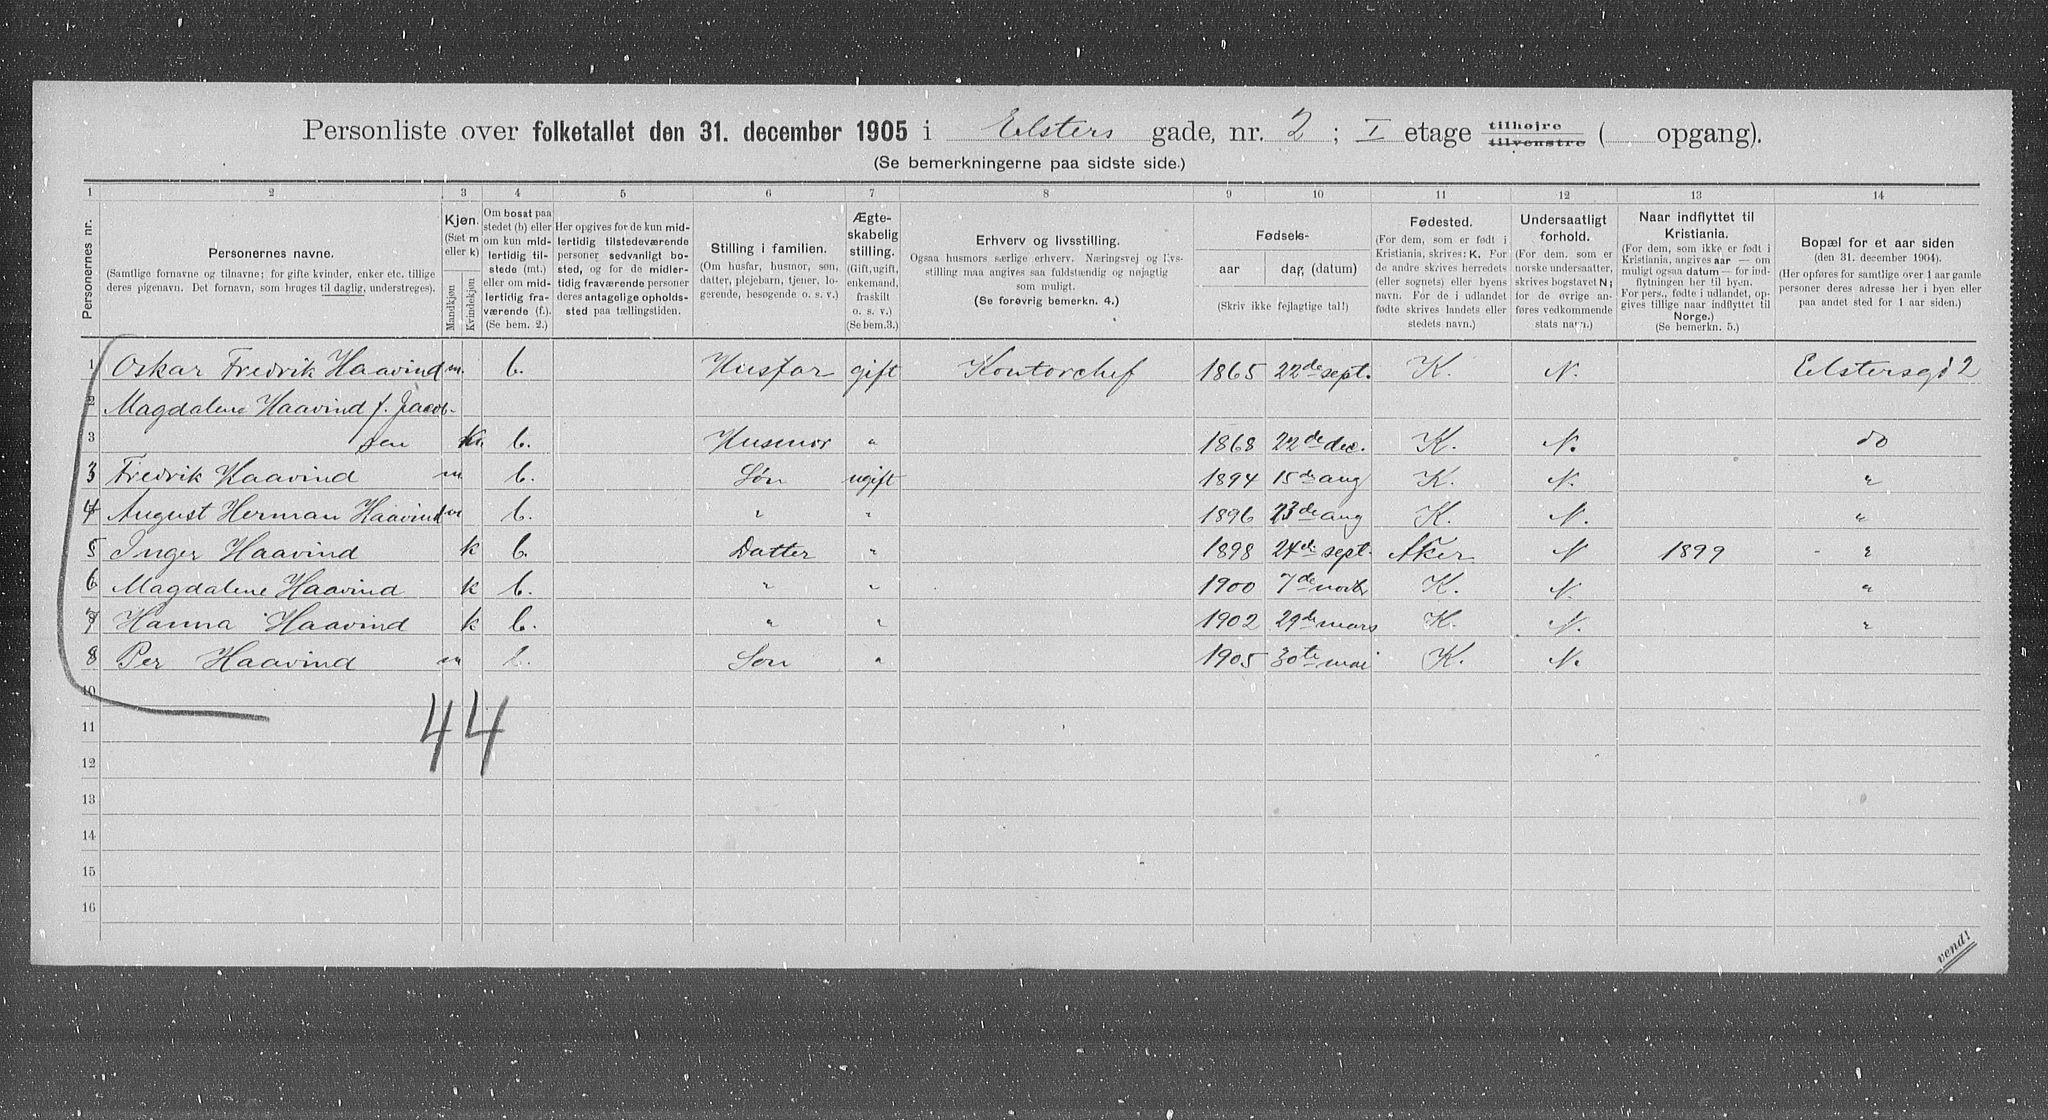 Personliste over folketallet den 31. december 1905 i Eilsters gade, nr. 2 ; I etage tilhøjre tilvenstre ( opgang).
(Se bemerkningerne paa sidste side.)
1 2 3 4 5 6 7 8 9 10 11 12 13 14
Personernes nr.
Personernes navne.
(Samtlige fornavne og tilnavne; for gifte kvinder, enker etc. tillige
deres pigenavn. Det fornavn, som bruges til daglig, understreges).
Kjøn.
(Sæt m
eller k)
Mandkjøn
Kvindekjøn
Om bosat paa
stedet (b) eller
om kun mid-
lertidig til-
stede (mt.)
eller om mid-
lertidig fra-
værende (f.).
(Se bem. 2.)
Her opgives for de kun mid-
lertidig tilstedeværende
personer sedvanligt bo-
sted, og for de midler-
tidig fraværende personer
deres antagelige opholds-
sted paa tællingstiden.
Stilling i familien.
(Om husfar, husmor, søn,
datter, plejebarn, tjener, lo-
gerende, besøgende o. s. v.)
Ægte-
skabelig
stilling.
(Gift, ugift,
enkemand,
fraskilt
o. s. v.)
(Se bem.3.)
Erhverv og livsstilling.
Ogsaa husmors særlige erhverv. Næringsvej og livs-
stilling maa angives saa fuldstændig og nøjagtig
som muligt.
(Se forøvrig bemerkn. 4.)
Fødsels-
aar dag, (datum)
(Skriv ikke fejlagtige tal!)
Fødested.
(For dem, som er født i
Kristiania, skrives: K. For
de andre skrives herredets
(eller sognets) eller byens
navn. For de i udlandet
fødte skrives landets eller
stedets navn.)
Undersaatligt
forhold.
(For dem. som er
norske undersaatter,
skrives bogstavet N;
for de øvrige an-
føres vedkommende
stats navn.)
Naar indflyttet til
Kristiania.
(For dem, som ikke er født i
Kristiania, angives aar — om
muligt ogsaa datum — for ind-
flytningen her til byen.
For pers., fødte i udlandet, op-
gives tillige naar indflyttet til
Norge.)
(Se bemerkn. 5.)
Bopæl for et aar siden
(den 31. december 1904).
(Her opføres for samtlige over 1 aar gamle
personer deres adresse her i byen eller
paa andet sted for 1 aar siden.)
1 Oskar Fredrik Haavind m. b. Husfar gift Kontorchef 1865 22de sept. K. N. Eilstersgd 2
2 Magdalene Haavind f. Jacob-
3 sen k. b. Husmor " 1868 22de dec. K. N. do
3 Fredrik Haavind m b. Søn ugift 1894 15de aug K. N. "
4 August Herman Haavind m b. " " 1896 23de aug K. N. "
5 Inger Haavind k b. Datter " 1898 24de sept. Aker N 1899 "
6 Magdalene Haavind k b. " " 1900 7de novbr K. N. "
7 Hanna Haavind k b. " " 1902 29de mars K. N. "
8 Per Haavind m b. Søn " 1905 30te mai K. N.
10
4 4
11
12
13
14
15
16
vend!